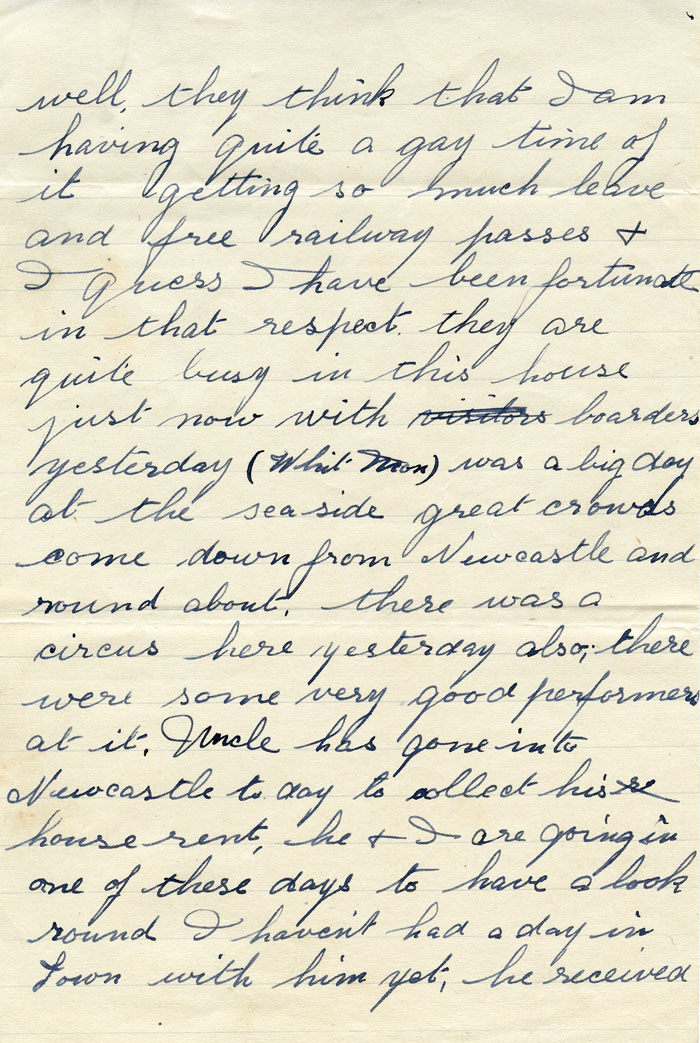 well, they think that I am
having quite a gay time of
it getting so much leave
and free railway passes &
I guess I have been fortunate
in that respect. they are
quite busy in this house
just now with visitors boarders
yesterday (Whit Mon) was a big day
at the sea side great crowds
come down from Newcastle and
round about. there was a
circus here yesterday also; there
were some very good performers
at it. Uncle has gone into
Newcastle to day to collect his re
house rent, he & I are going in
one of these days to have a look
round I haven't had a day in
Town with him yet, he received